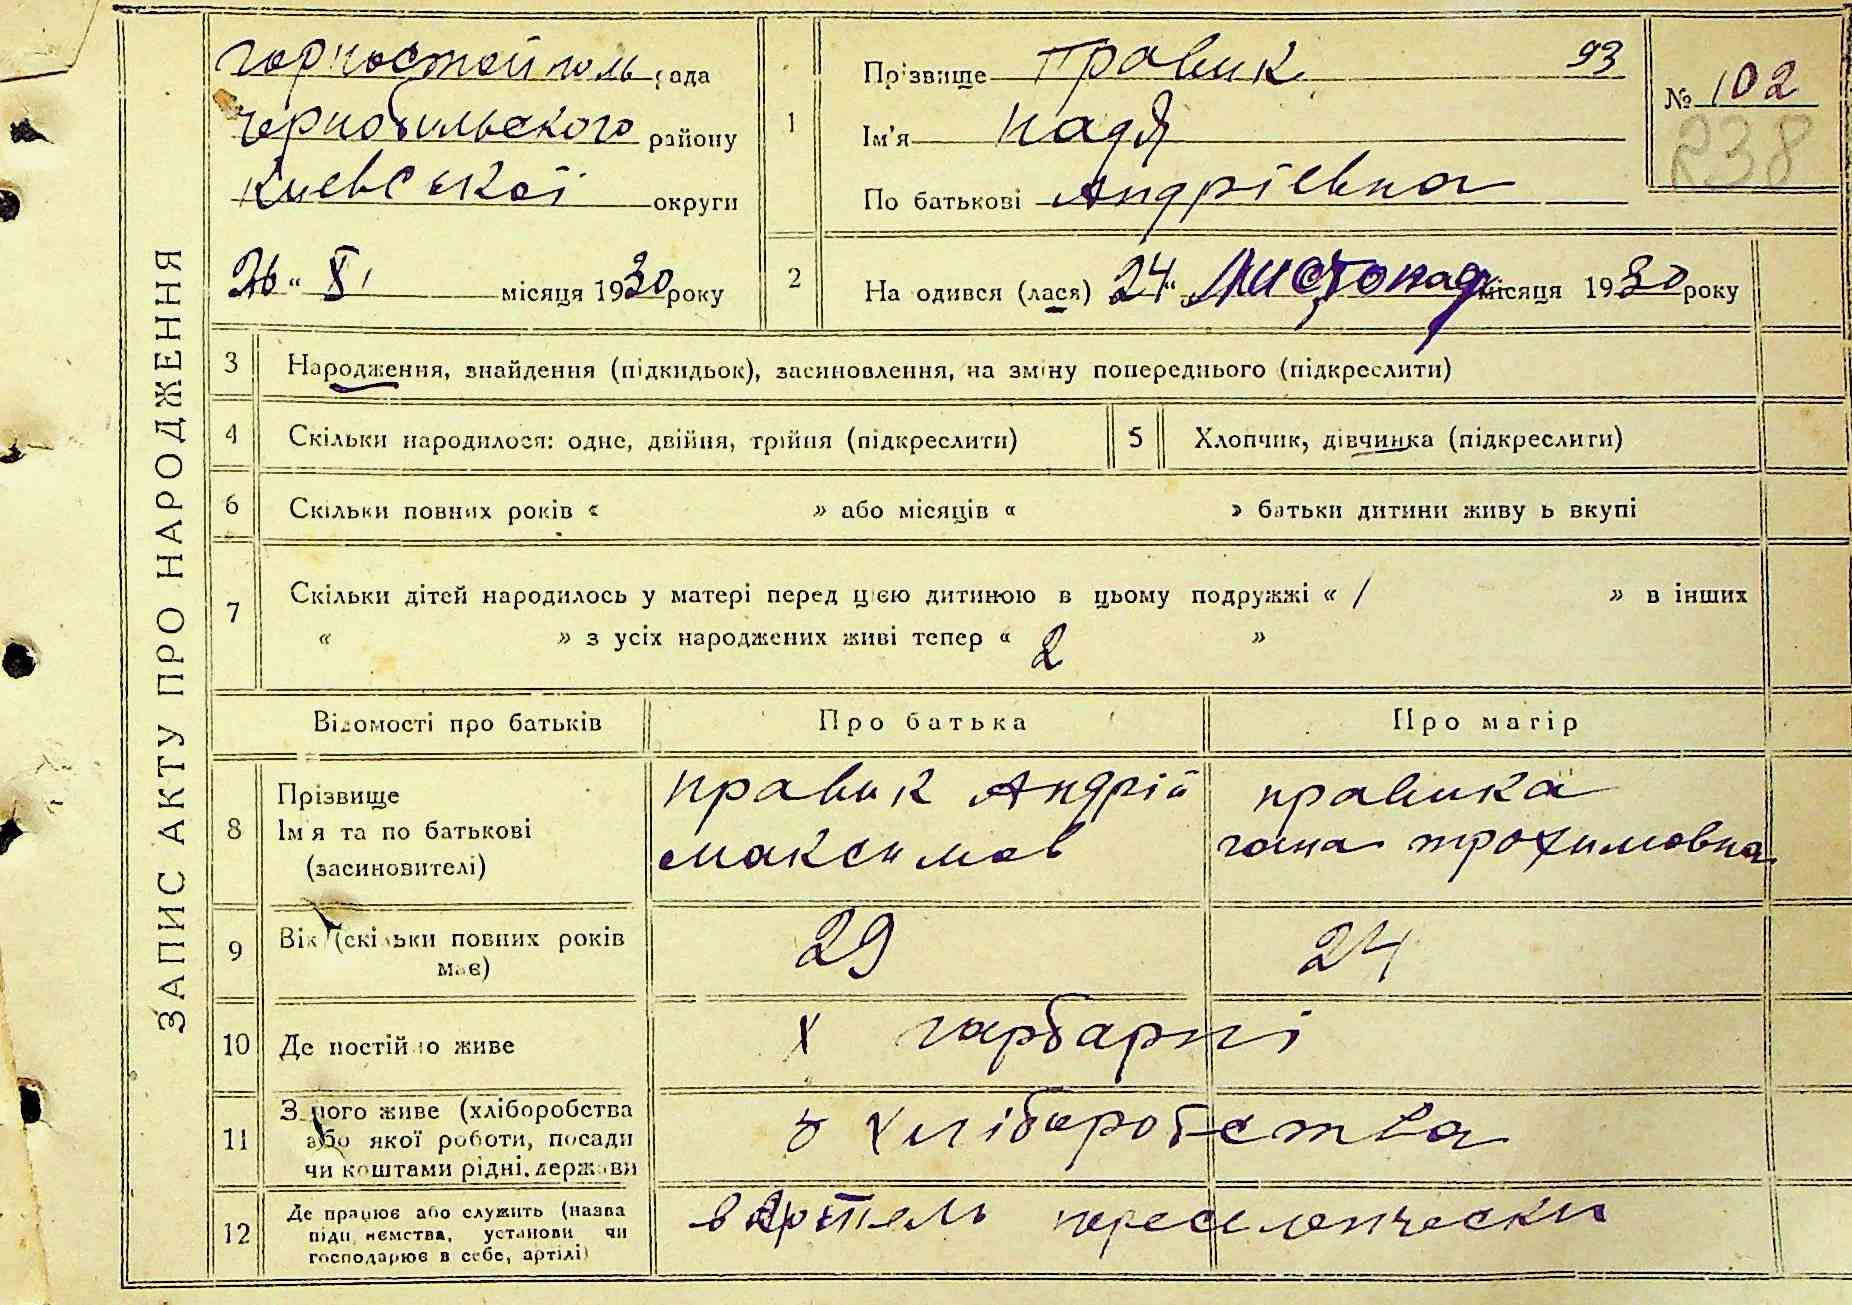 ЗАПИС АКТУ ПРО НАРОДЖЕННЯ
горностайполь рада
чернобильского району
Киевської округи
26 " XI місяця 1930 року
1
Прізвище Правик 93
Ім'я Надя
По батькові Андрієвна
№ 102
238
2
Народився (лася) 24 " Листопад місяця 1930 року
3 Народження, знайдення (підкидьок), засиновлення, на зміну попереднього (підкреслити)
4 Скільки народилося: одне, двійня, трійня (підкреслити) 5 Хлопчик, дівчинка (підкреслити)
6 Скільки повних років « » або місяців « » батьки дитини живуть вкупі
7 Скільки дітей народилось у матері перед цією дитиною в цьому подружжі « 1 » в інших
« » з усіх народжених живі тепер « 2 »
Відомості про батьків Про батька Про матір
8 Прізвище
Ім'я та по батькові
(засиновителі)
правик Андрій
максимов
правика
гана трохимовна
9 Вік (скільки повних років
має)
29 24
10 Де постійно живе х гарбарні
11 З чого живе (хліборобства
або якої роботи, посади
чи коштами рідні, держави
з хліборобства
12 Де працює або служить (назва
підприємства, установи чи
господарює в себе, артілі)
в Артель